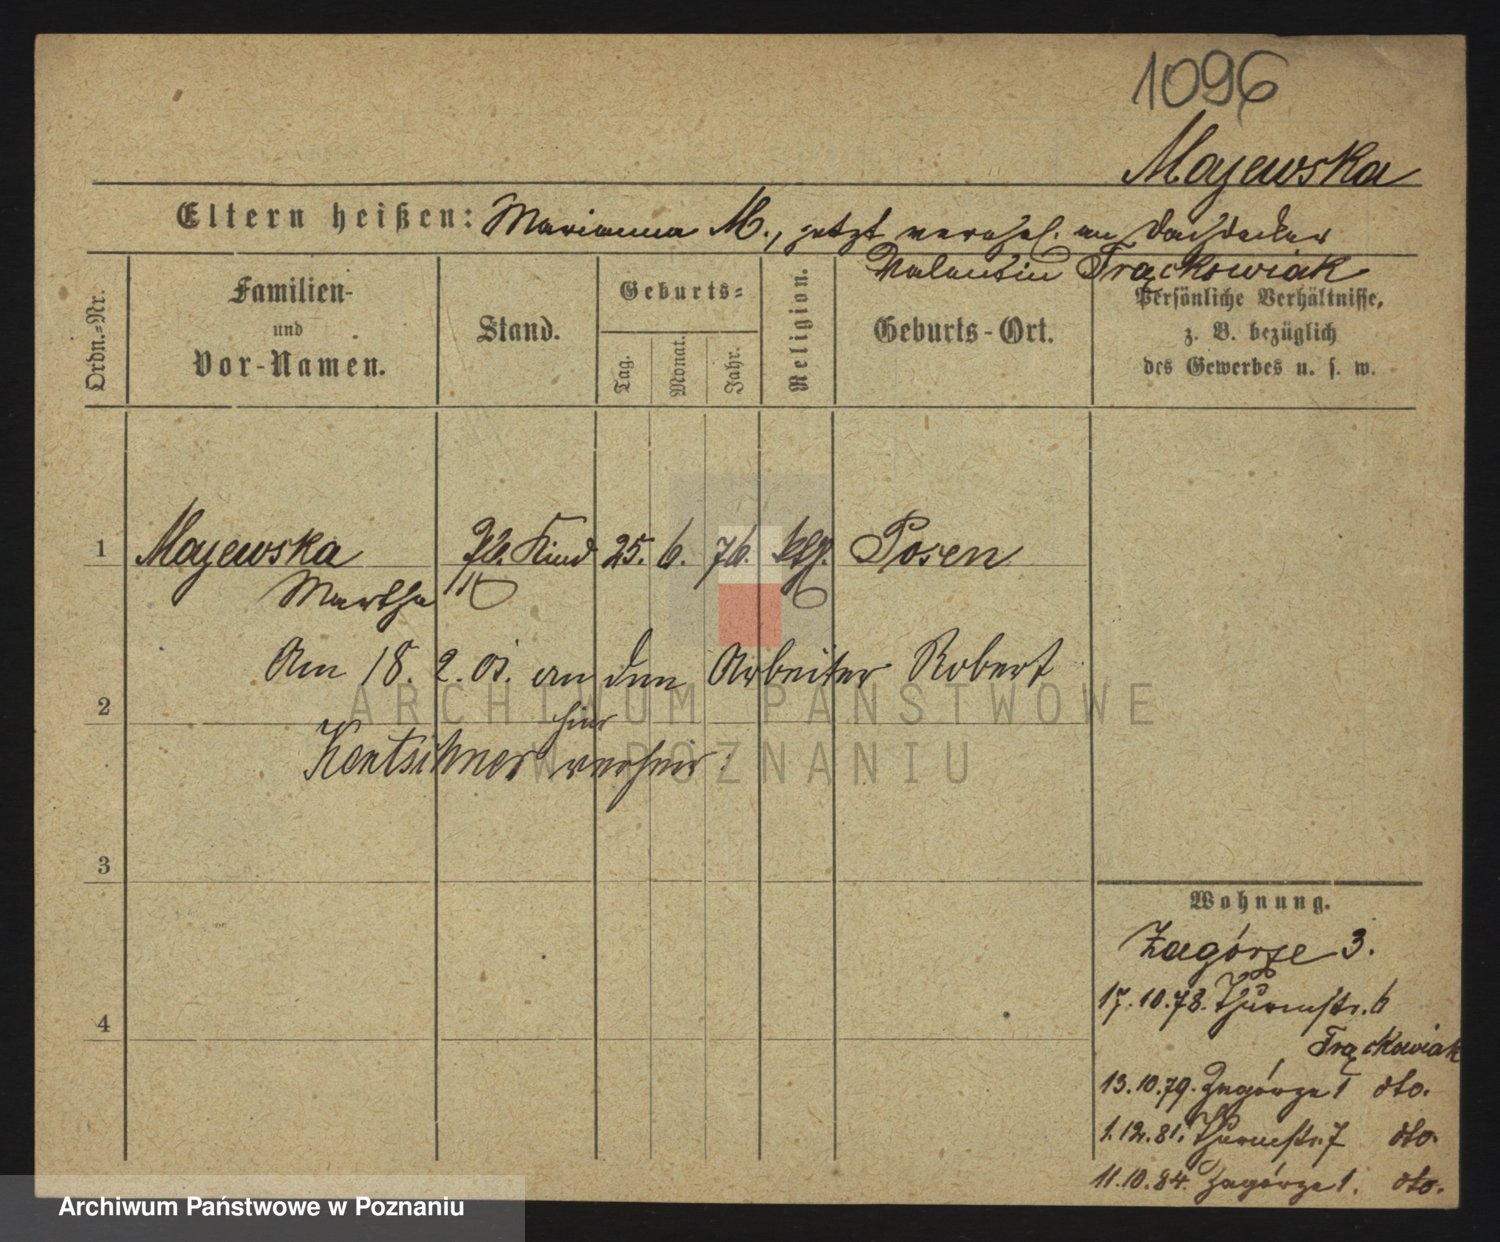 1096
Majewska
Eltern heißen: Marianna M., jetzt verehel. an Dachdecker
Valentin Trąckowiak
Ordn.-Nr.
Familien-
und
Vor-Namen.
Stand.
Geburts-
Tag.
Monat.
Jahr.
Religion.
Geburts-Ort.
Persönliche Verhältnisse,
z. B. bezüglich
des Gewerbes u. s. w.
1 Majewska Kind 25. 6. 76. Posen
Martha
Am 18. 2. 01. an den Arbeiter Robert
2
hier
verheir:
3
4
Wohnung.
Zagórze 3.
17.10.78. Thurmstr. 6
Trąckowiak
13.10.79. Zagórze 1 dto.
1.12.81. Thurmstr. 7 dto.
11.10.84. Zagórze 1. dto.
ARCHIWUM PAŃSTWOWE
W POZNANIU
Archiwum Państwowe w Poznaniu